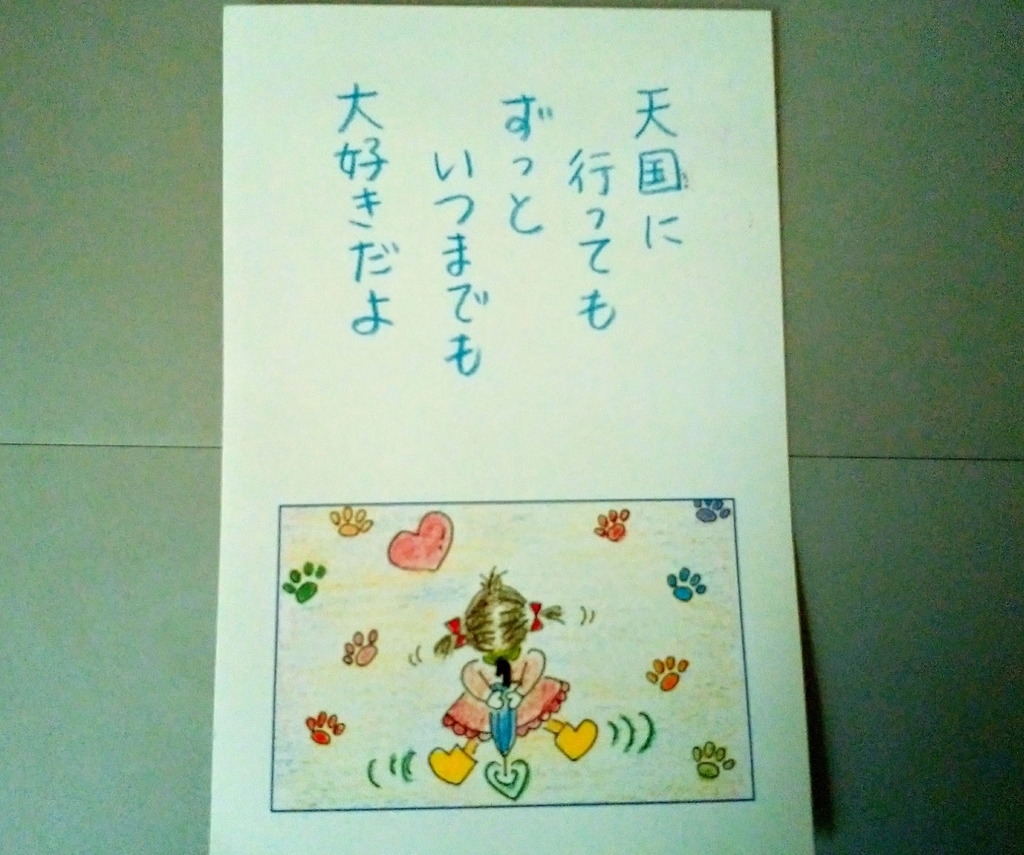 天国に
行っても
ずっと
いつまでも
大好きだよ